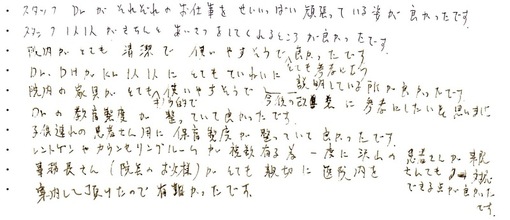 ・ スタッフ Dr がそれぞれのお仕事をせいいっぱい頑張っている姿が良かったです。
・ スタッフ1人1人がきちんとあいさつをしてくれるところが良かったです。
・ 院内がとても清潔で使いやすそうで良かったです。
・ Dr、DHがKr 1人1人にとてもていねいに説明している所が良かったです。
・ 院内の家具がとても使いやすそうで とても参考になり 今後の改善案に参考にしたいと思います
・ Drの教育制度が整っていて良かったです。
・ 子供連れの患者さん用に保育制度が整っていて良かったです。
・ レントゲンやカウンセリングルームが複数有る為一度に沢山の患者さんが来院されても対応できる点が良かったです。
・ 事務長さん(院長のお父様)がとても親切に医院内を
案内して頂けたので有難かったです。